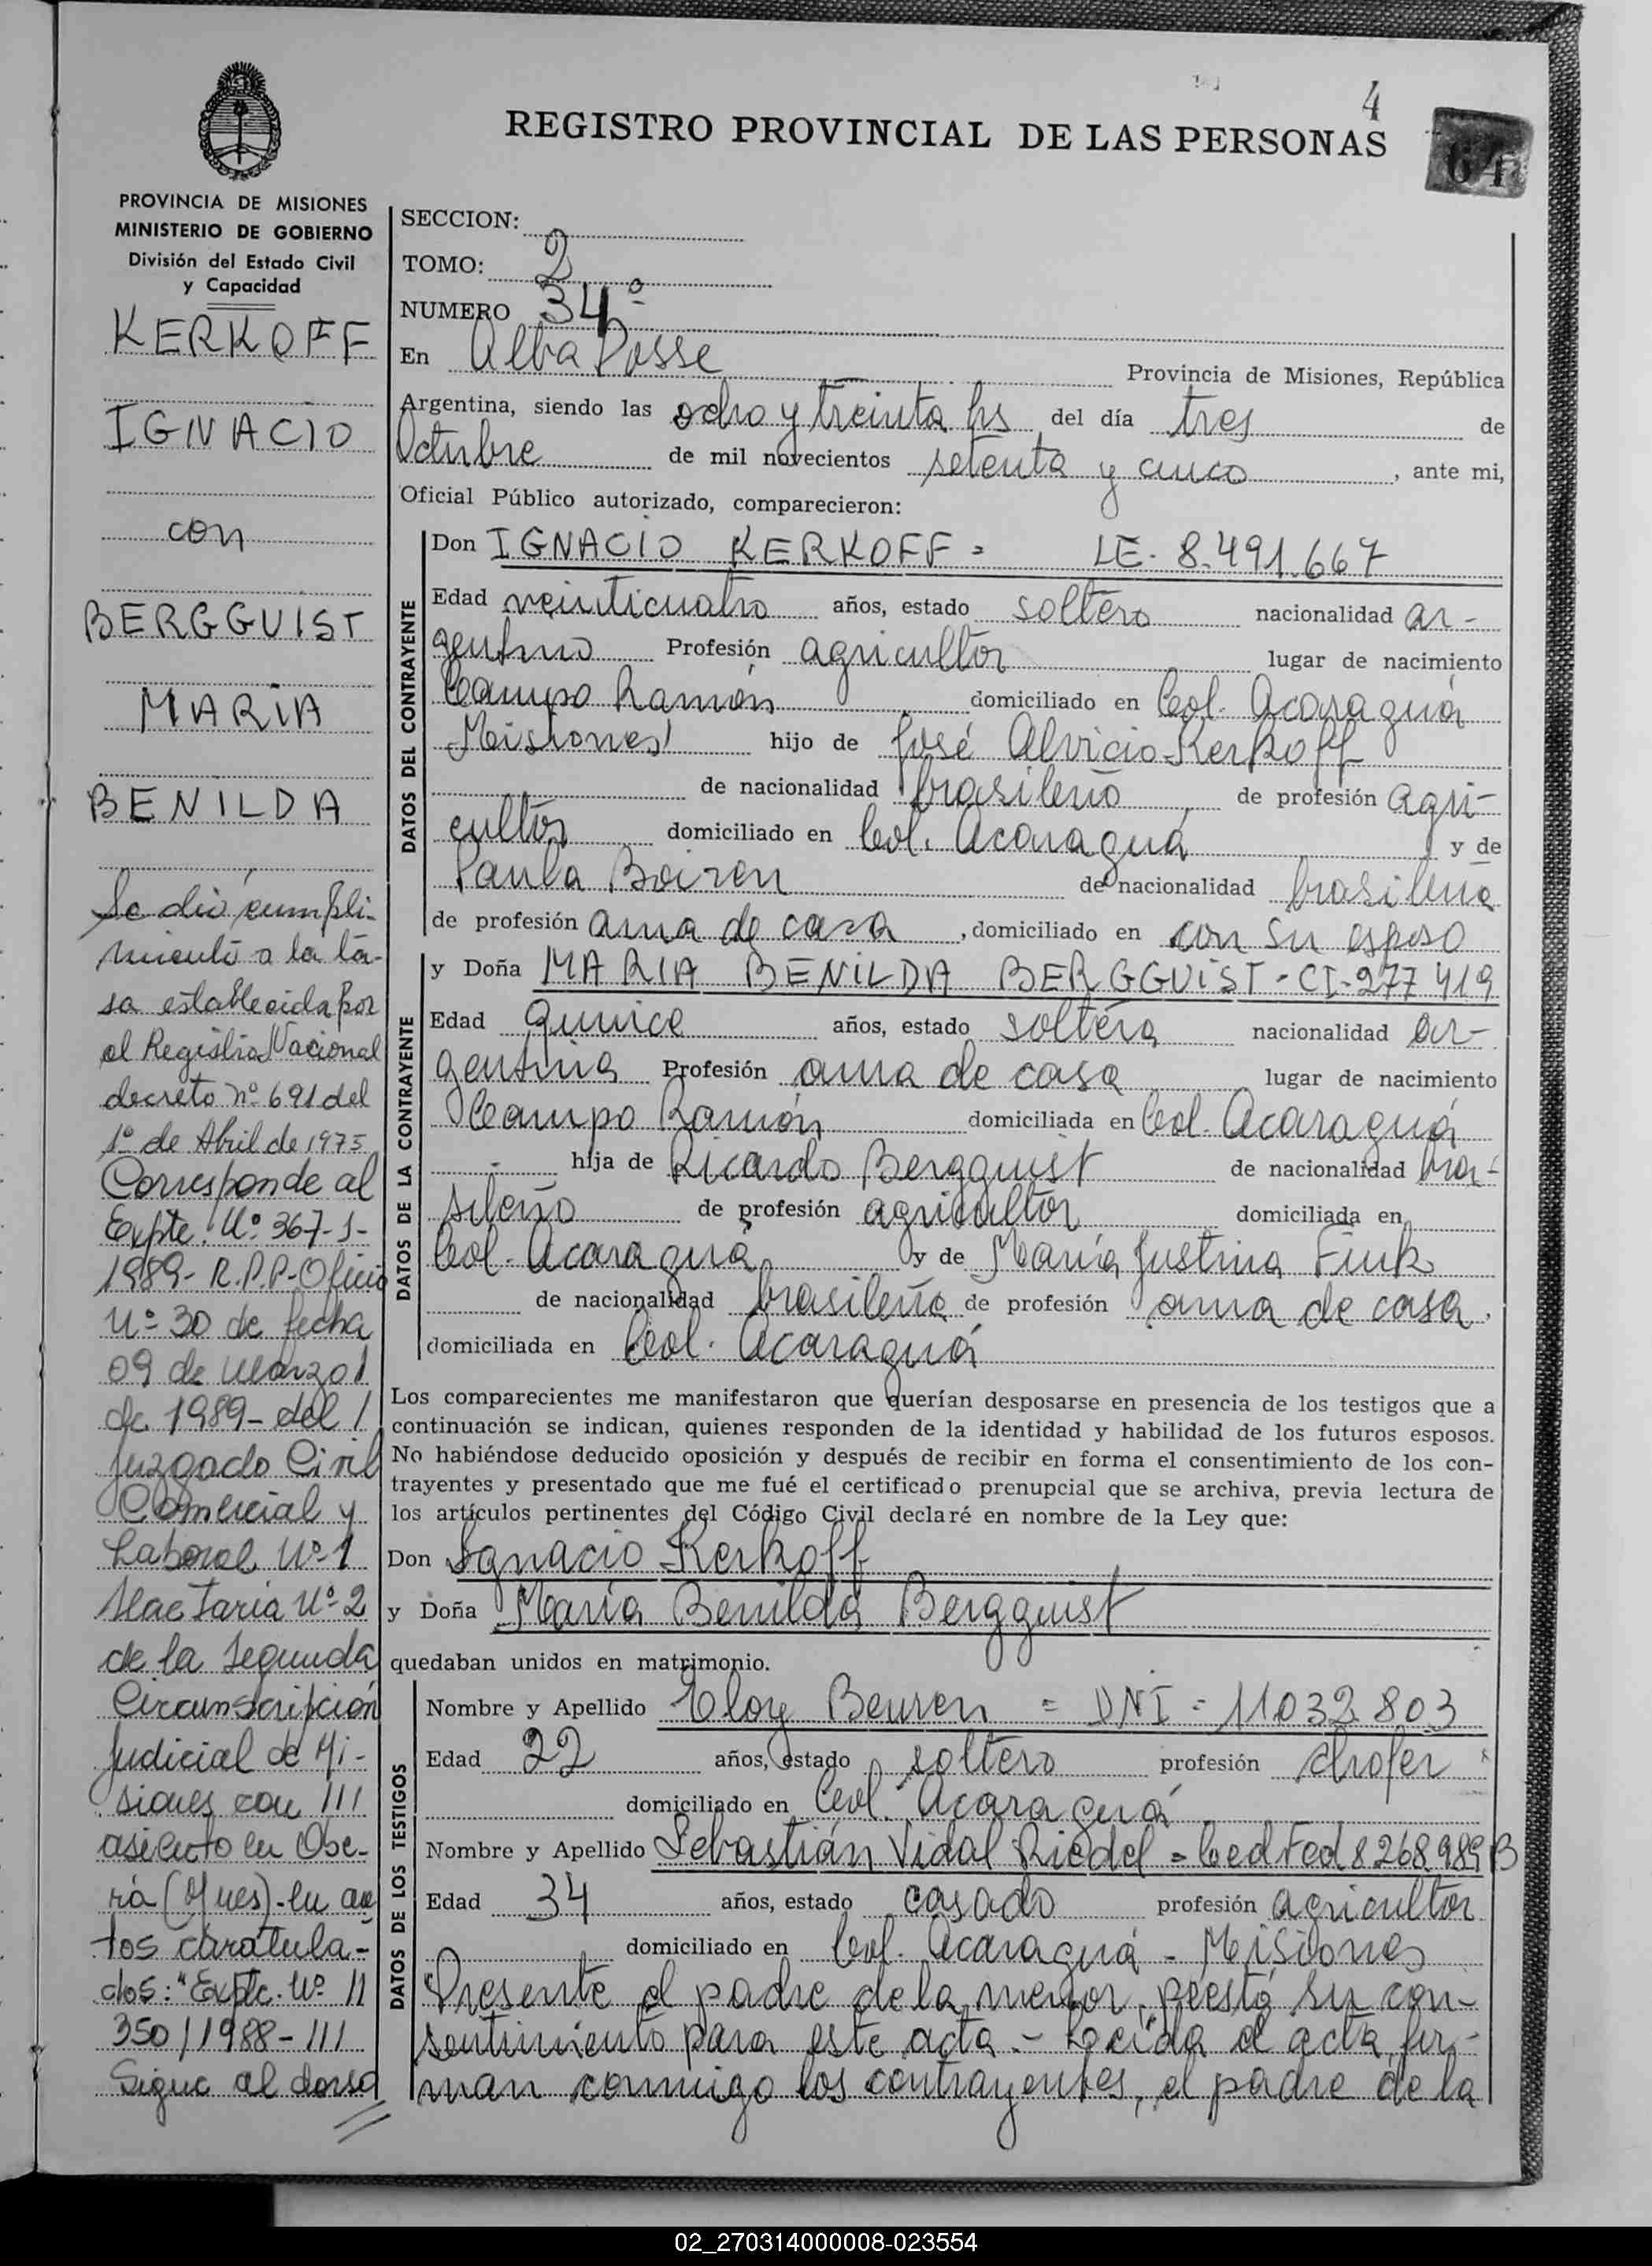 4
REGISTRO PROVINCIAL DE LAS PERSONAS
64
PROVINCIA DE MISIONES
MINISTERIO DE GOBIERNO
División del Estado Civil
y Capacidad
KERKOFF
IGNACIO
con
BERGGUIST
MARIA
BENILDA
Se dió cumpli-
miento a la ta-
sa establecida por
el Registro Nacional
decreto nº 691 del
1º de Abril de 1975
Corresponde al
Expte. Nº 367-J-
1989- R.P.P-Oficio
Nº 30 de fecha
09 de Marzo /
de 1989- del /
Juzgado Civil
Comercial y
Laboral Nº 1
Secretaria Nº 2
de la Segunda
Circunscripción
Judicial de Mi-
siones con ///
asiento en Obe-
rá (Mnes)-en au
tos caratula-
dos: "Expte. Nº //
350/1988-///
Sigue al dorso
SECCION:
TOMO: 2
NUMERO 34º
En Alba Posse Provincia de Misiones, República
Argentina, siendo las ocho y treinta hs del día tres de
Octubre de mil novecientos setenta y cinco, ante mi,
Oficial Público autorizado, comparecieron:
DATOS DEL CONTRAYENTE
Don IGNACIO KERKOFF = LE- 8.491.667
Edad veinticuatro años, estado soltero nacionalidad ar-
gentino Profesión agricultor lugar de nacimiento
Campo Ramón domiciliado en Col. Acaraguá
Misiones hijo de José Alvicio Kerkoff
de nacionalidad brasileño de profesión agri-
cultor domiciliado en Col. Acaraguá y de
Paula de nacionalidad brasileña
de profesión ama de casa, domiciliado en con su esposo
DATOS DE LA CONTRAYENTE
y Doña MARIA BENILDA BERGGUIST - CI-277419
Edad quince años, estado soltera nacionalidad ar-
gentina Profesión ama de casa lugar de nacimiento
Campo Ramón domiciliada en Col. Acaraguá
- hija de Ricardo Bergguist de nacionalidad bra-
sileño de profesión agricultor domiciliada en
Col. Acaraguá y de María Justina Fink
de nacionalidad brasileña de profesión ama de casa.
domiciliada en Col. Acaraguá
Los comparecientes me manifestaron que querían desposarse en presencia de los testigos que a
continuación se indican, quienes responden de la identidad y habilidad de los futuros esposos.
No habiéndose deducido oposición y después de recibir en forma el consentimiento de los con-
trayentes y presentado que me fué el certificado prenupcial que se archiva, previa lectura de
los artículos pertinentes del Código Civil declaré en nombre de la Ley que:
Don Ignacio Kerkoff
y Doña María Benilda Bergguist
quedaban unidos en matrimonio.
DATOS DE LOS TESTIGOS
Nombre y Apellido Eloy Beuren = DNI = 11032803
Edad 22 años, estado soltero profesión chofer
domiciliado en Col. Acaraguá
Nombre y Apellido Sebastián Vidal Riedel = Ced Fed 8268989B
Edad 34 años, estado casado profesión agricultor
domiciliado en Col. Acaraguá - Misiones
Presente el padre de la menor, presta su con-
sentimiento para este acta - Leída el acta fir-
man conmigo los contrayentes, el padre de la
02_270314000008-023554